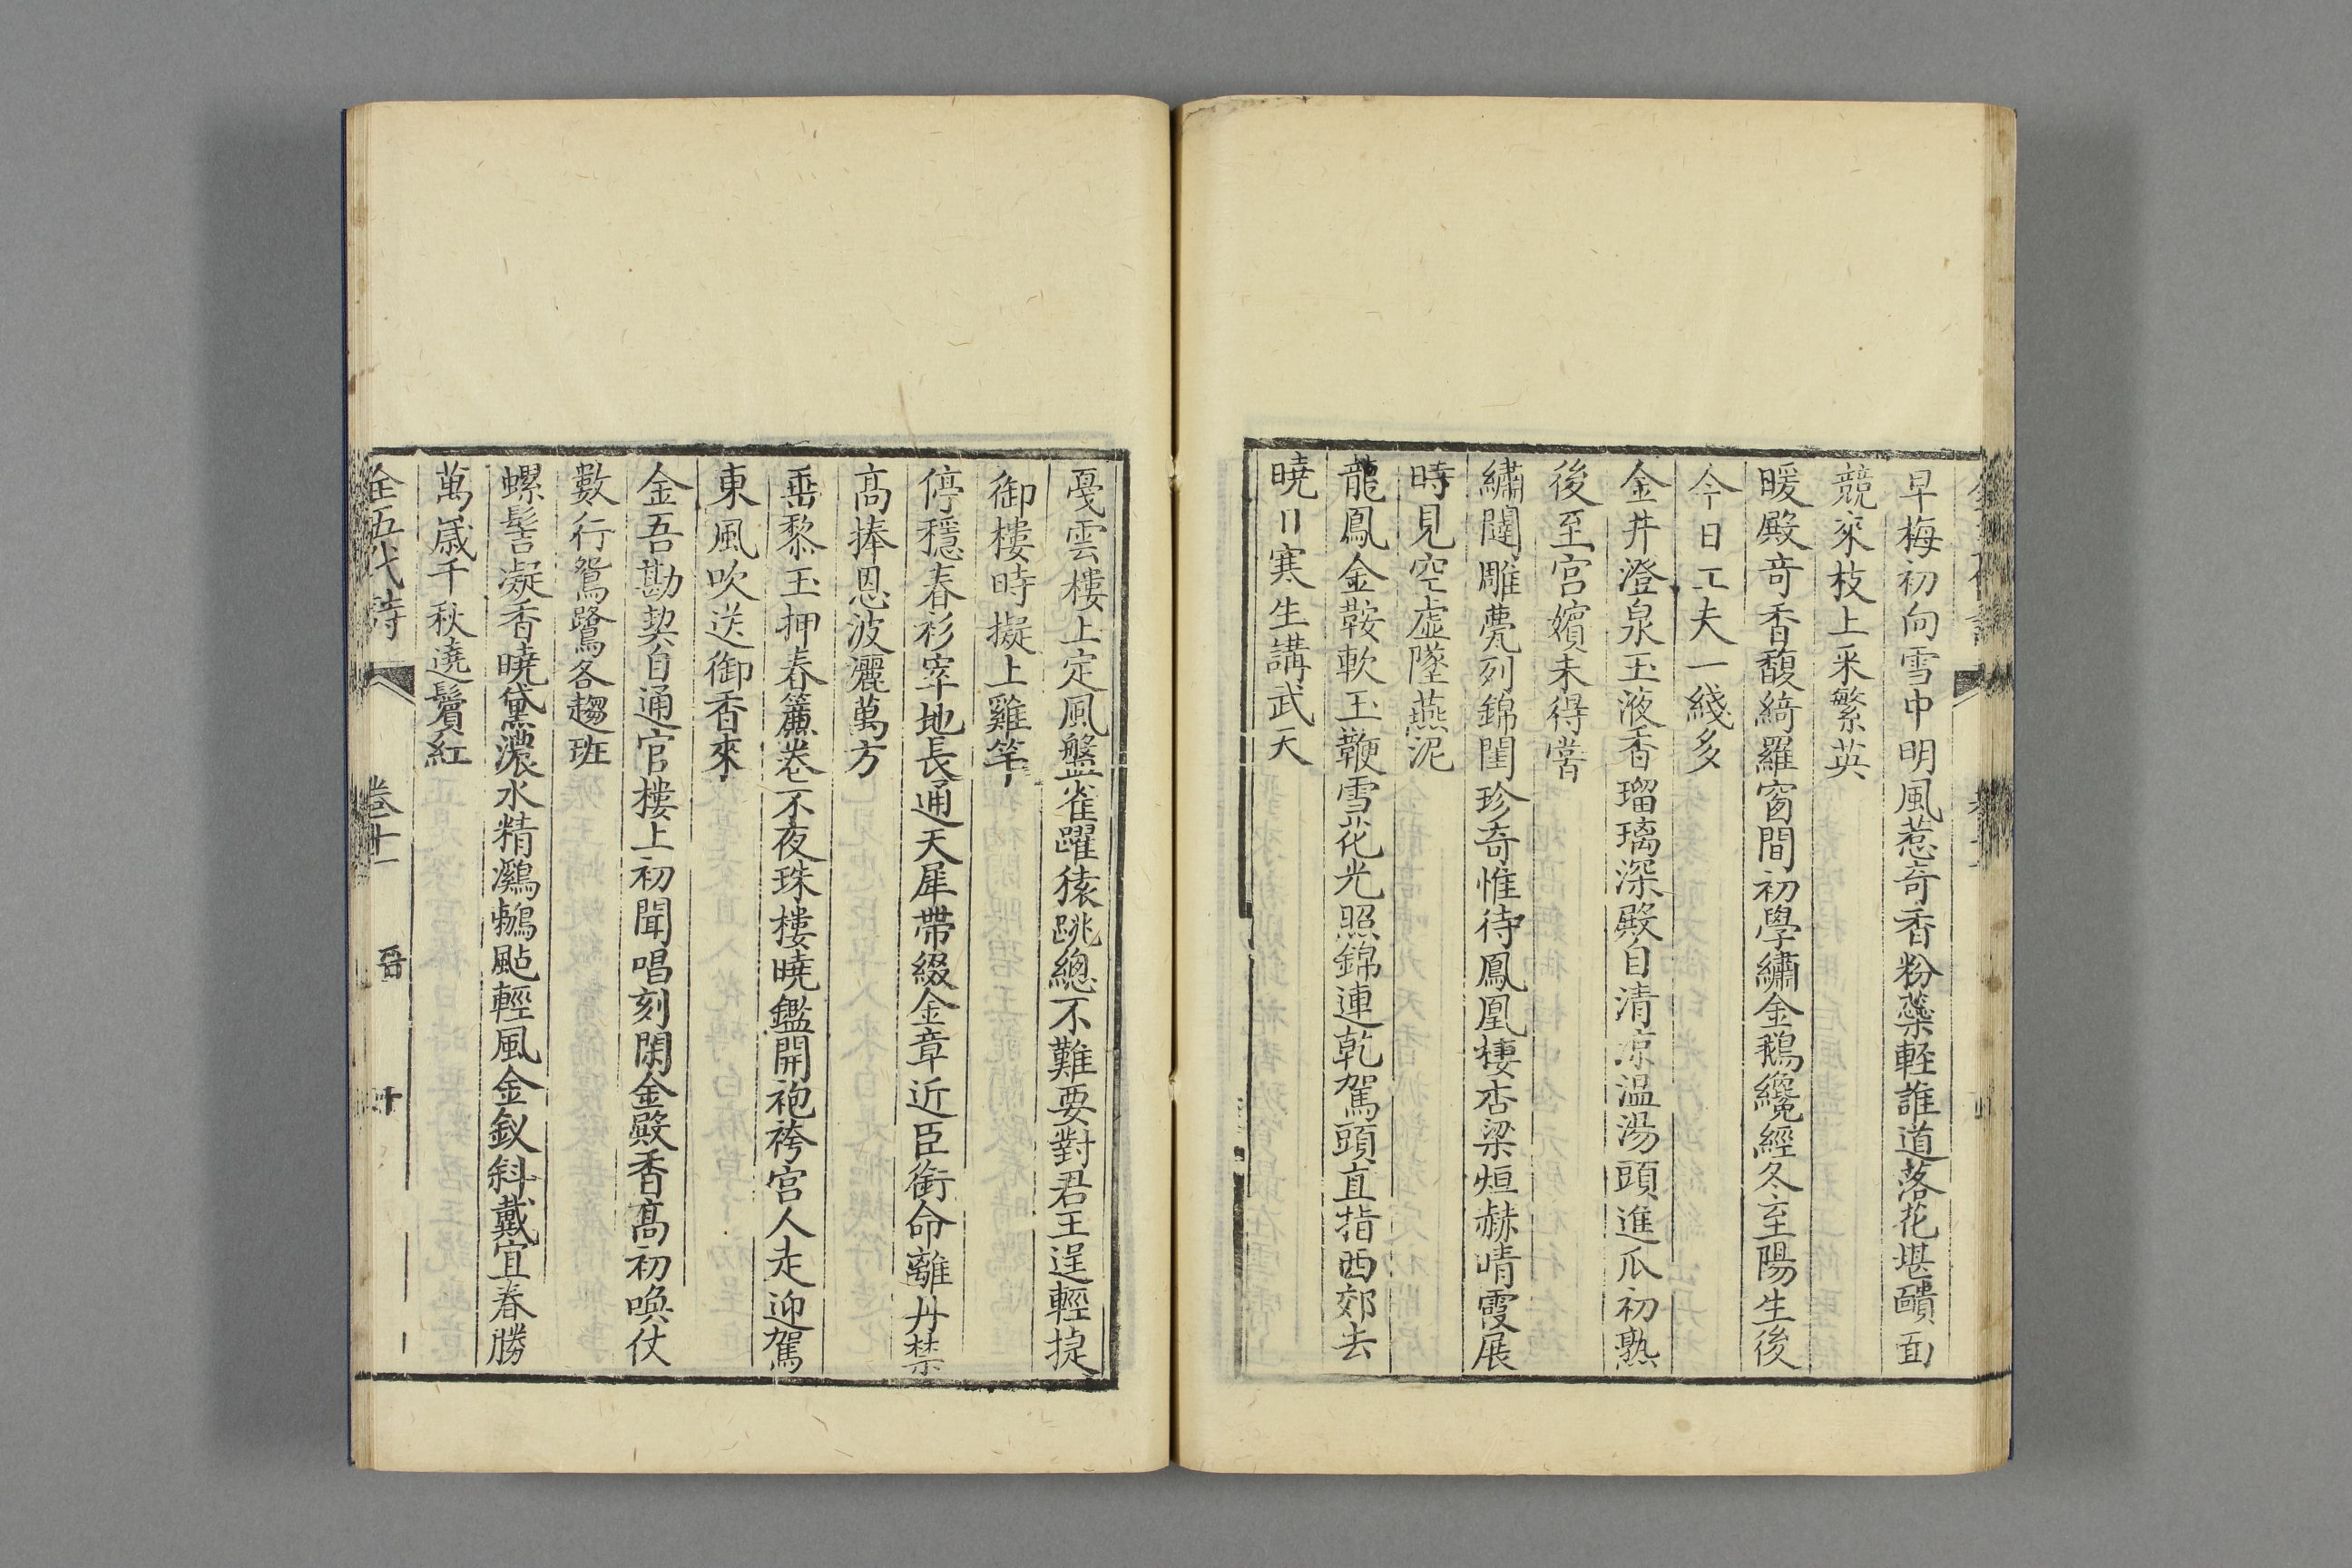 早梅初向雪中明風惹奇香粉蘂軽誰道落花堪靧面
競來枝上采繁英
暖殿奇香馥綺羅窗間初學繡金鵝纔經冬至陽生後
今日工夫一綫多
金井澄泉玉液香瑠璃深殿自清凉温湯頭進瓜初熟
後至宫嬪未得嘗
繡闥雕甍列錦閨珍奇惟待鳳凰棲杏梁烜赫晴霞展
時見空虛墜燕泥
龍鳳金鞍軟玉鞭雪花光照錦連乾駕頭直指西郊去
曉日寒生講武天
戞雲樓上定風盤雀躍猿跳總不難要對君王逞輕捷
御樓時擬上雞竿
停穩春衫窣地長通天犀帶綴金章近臣銜命離丹禁
高捧恩波灑萬方
垂黎玉押春簾卷不夜珠樓曉鑑開袍袴宫人走迎駕
東風吹送御香來
金吾勘契自通官樓上初聞唱刻閑金殿香高初喚仗
數行鴛鷺各趨班
螺髻凝香曉黛濃水精鸂鶒颭輕風金釵斜戴宜春勝
萬歲千秋遶鬢紅
全五代詩 卷十一 晉 十